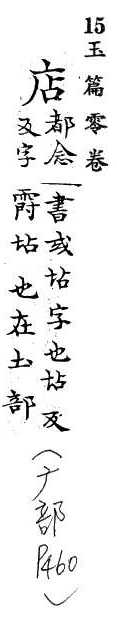 15玉篇零卷
店
都念
反字
書或坫字也坫反
爵坫也在土部
(广部 P460)